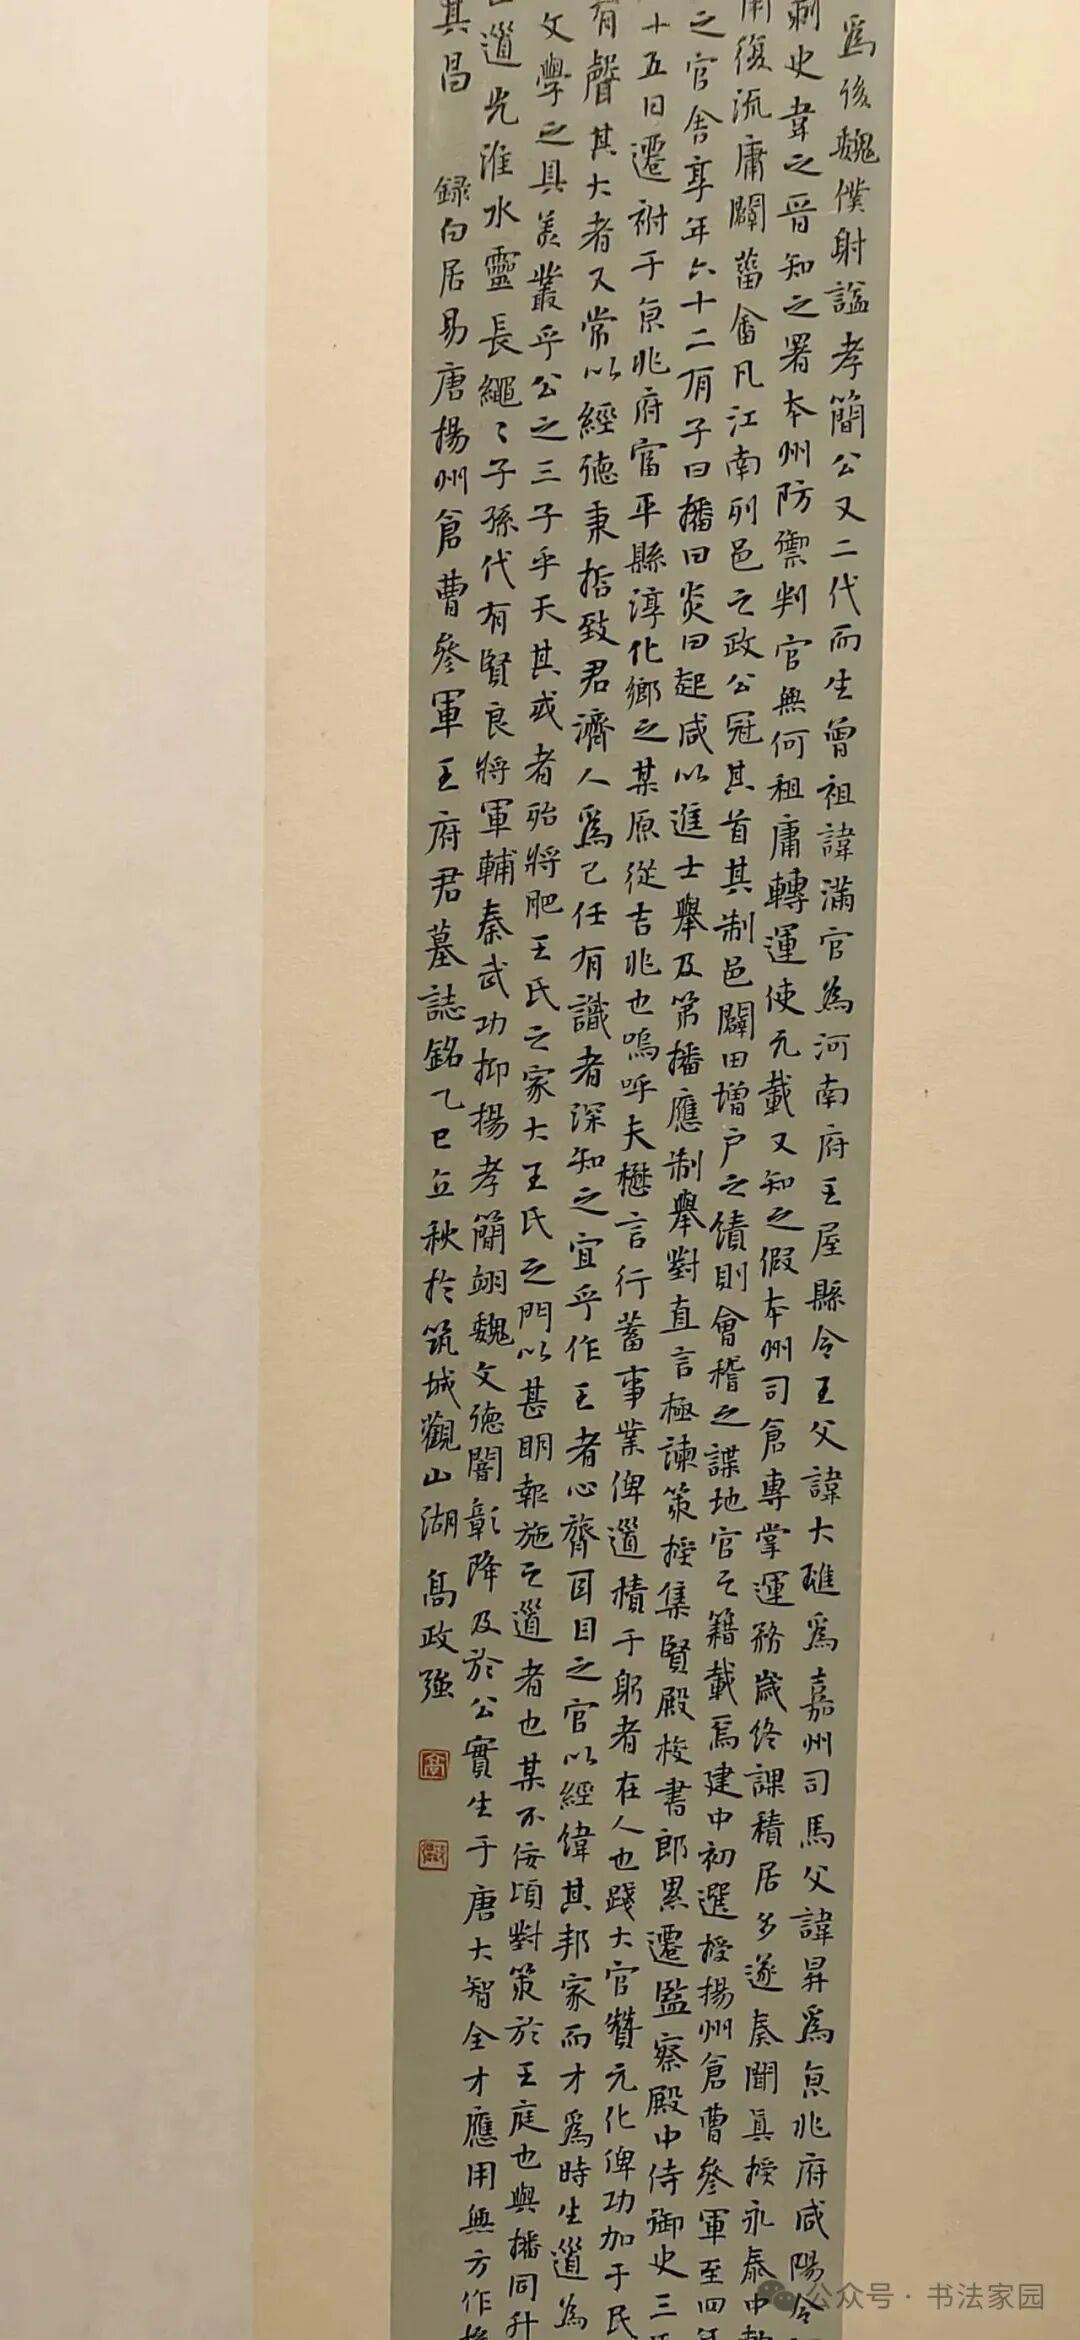 爲後魏僕射謚孝簡公又二代而生曾祖諱滿官爲河南府王屋縣令王父諱大璡爲嘉州司馬父諱昇爲京兆府咸陽令
刺史韋之晉知之署本州防禦判官無何租庸轉運使元載又知之假本州司倉專掌運務歲終課積居多遂奏聞真授永泰中敕
復流庸闢菑畬凡江南列邑之政公冠其首其制邑闢田增户之績則會稽之諜地官之籍載焉建中初選授揚州倉曹參軍至四年
之官舍享年六十二有子曰播曰炎曰起咸以進士舉及第播應制舉對直言極諫策授集賢殿校書郎累遷監察殿中侍御史三
十五日遷祔于京兆府富平縣淳化鄉之某原從吉兆也嗚呼夫懋言行蓄事業俾道積于躬者在人也踐大官贊元化俾功加于民
有聲其大者又常以經德秉哲致君濟人爲己任有識者深知之宜乎作王者心膂耳目之官以經緯其邦家而才爲時生道為
文學之具美叢乎公之三子乎天其或者殆將肥王氏之家大王氏之門以甚明報施之道者也某不佞頃對策於王庭也與播同升
道光淮水靈長繩〻子孫代有賢良將軍輔秦武功抑揚孝簡翊魏文德闇彰降及於公實生于唐大智全才應用無方作
其昌 録白居易唐揚州倉曹參軍王府君墓誌銘乙巳立秋於筑城觀山湖 高政強
公众号·书法家园